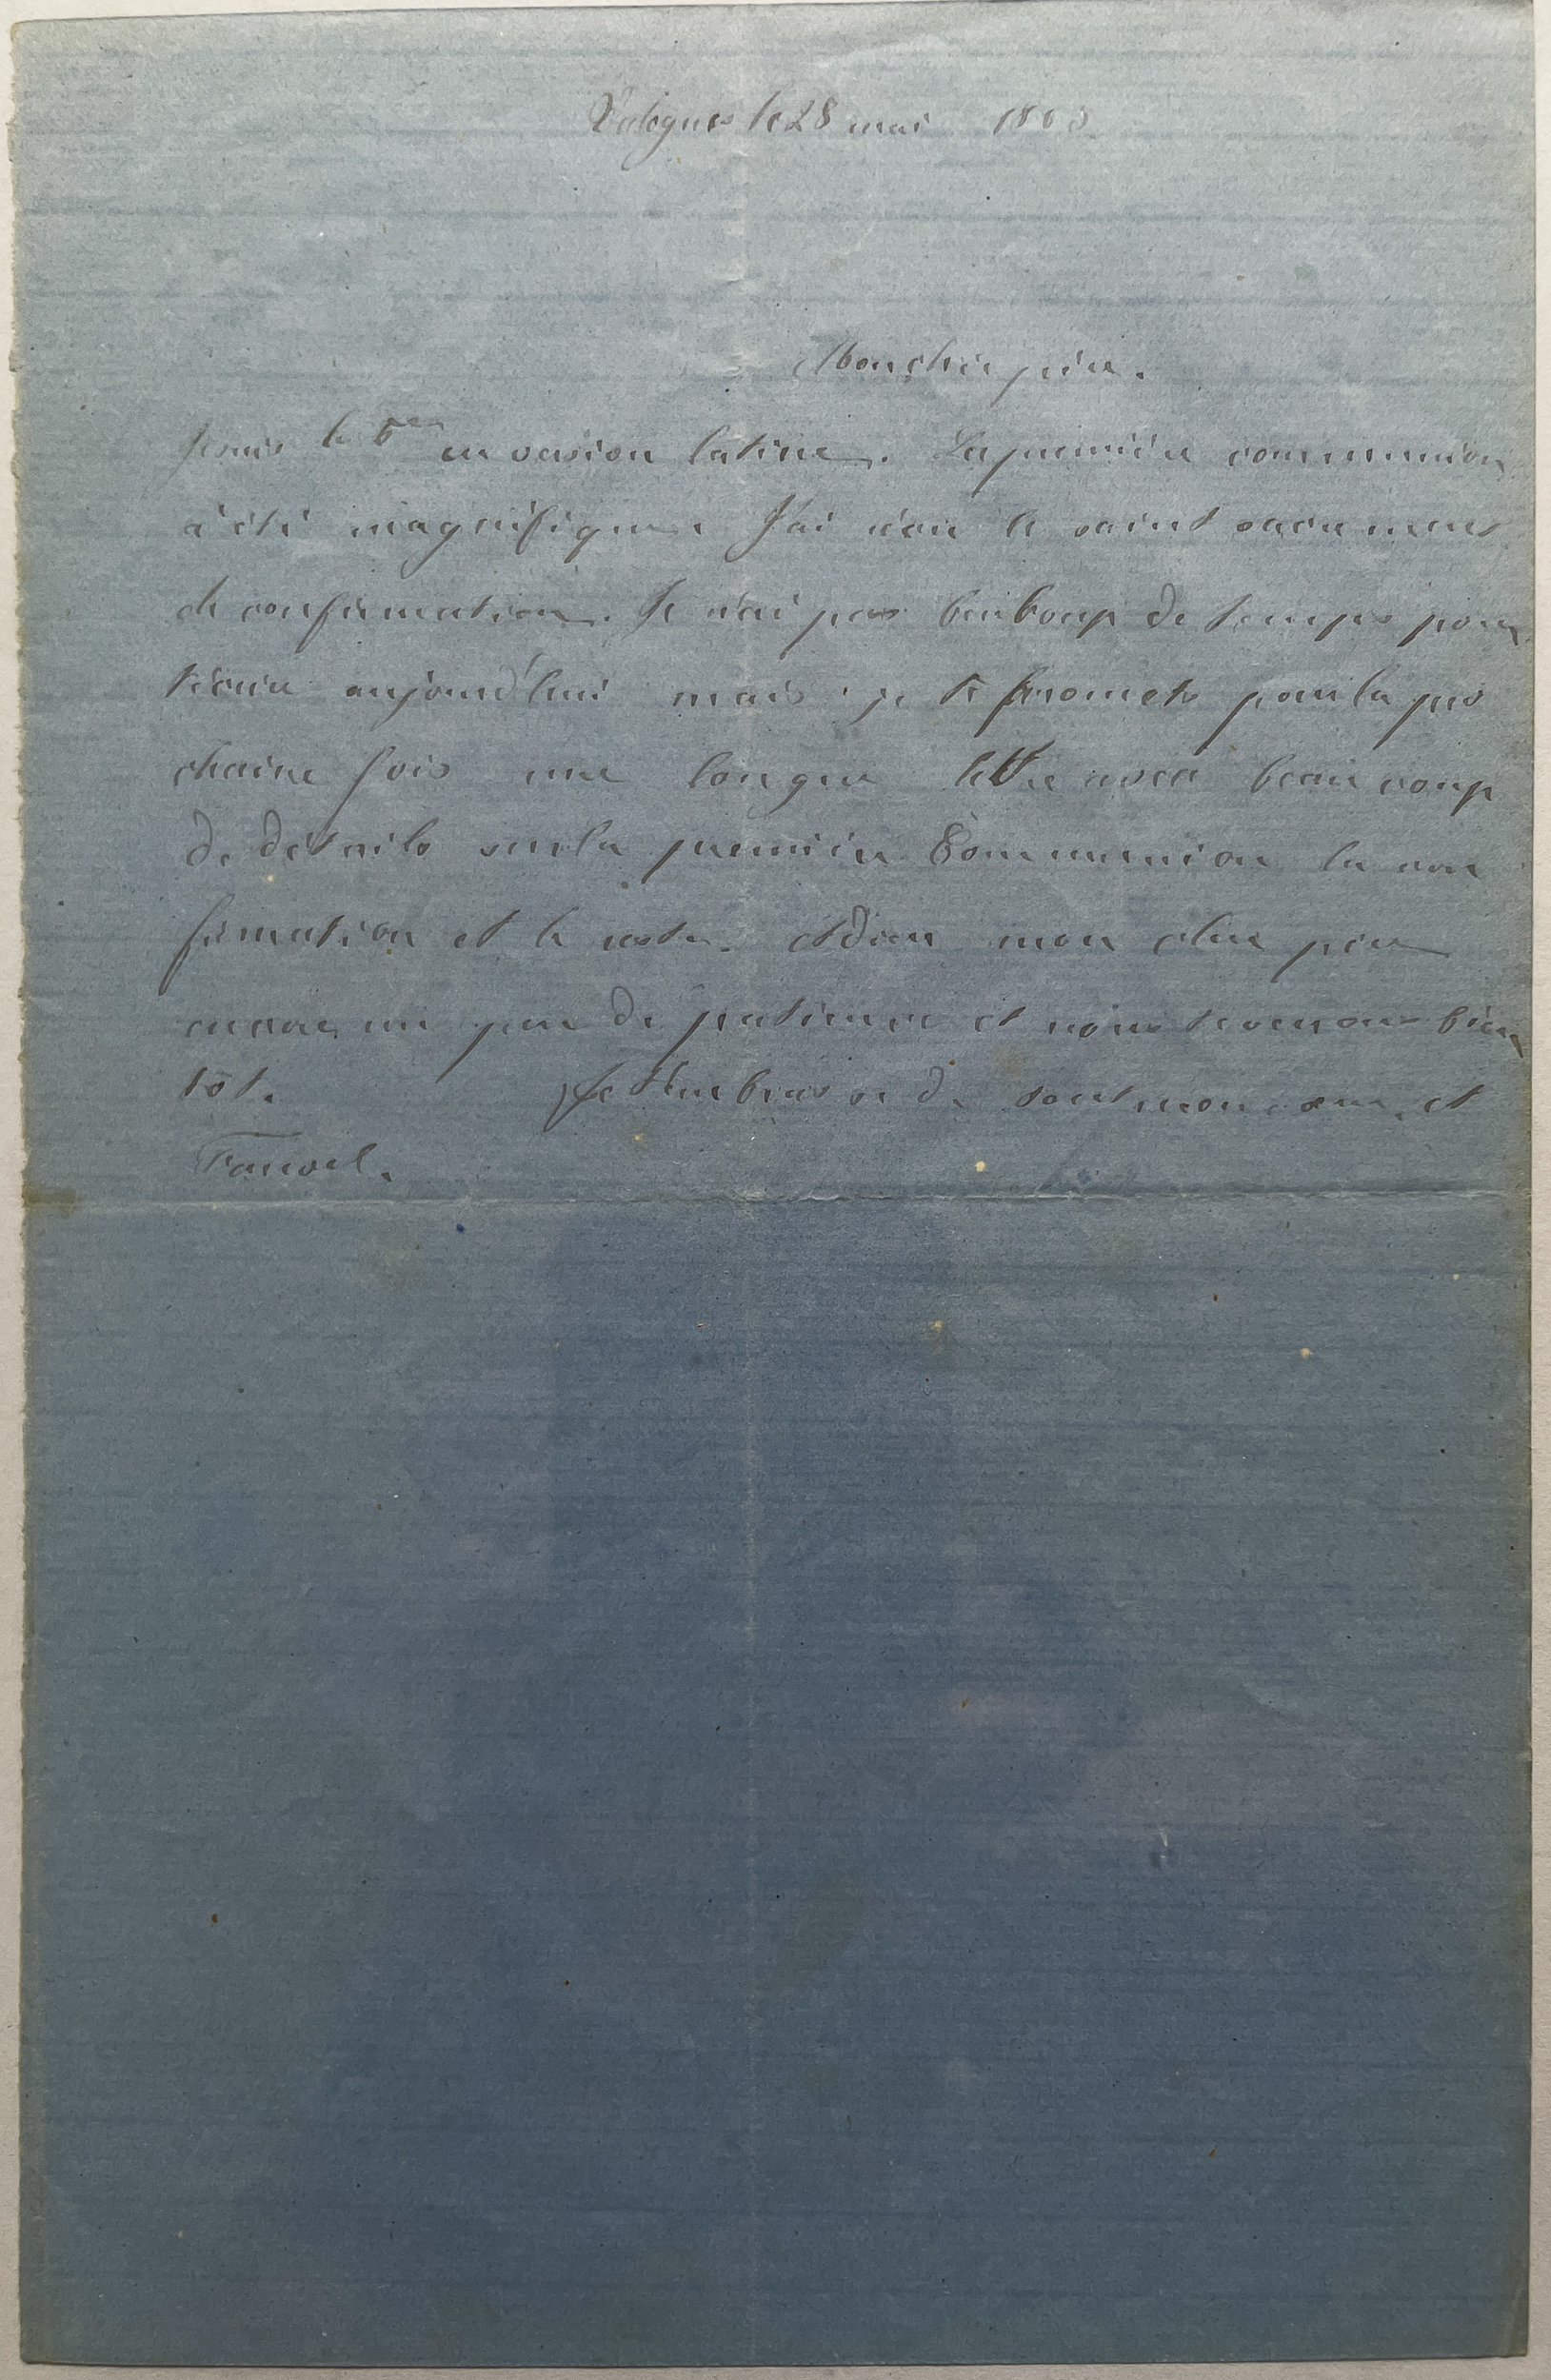 Valognes le 28 mai 186
Mon cher père.
Je suis le 6em en version latine. La première communion
a été magnifique. J'ai reçu le saint sacrement
de confirmation. Je n'ai pas beaucoup de temps pour
t'écrire aujourd'hui mais je te promets pour la pro
chaine fois une longue lettre avec beaucoup
de détails sur la première Communion la con
firmation et le reste. Adieu mon cher père
encore un peu de patience et nous te verrons bien
tôt. Je t'embrasse de tout mon cœur et
Fauvel.